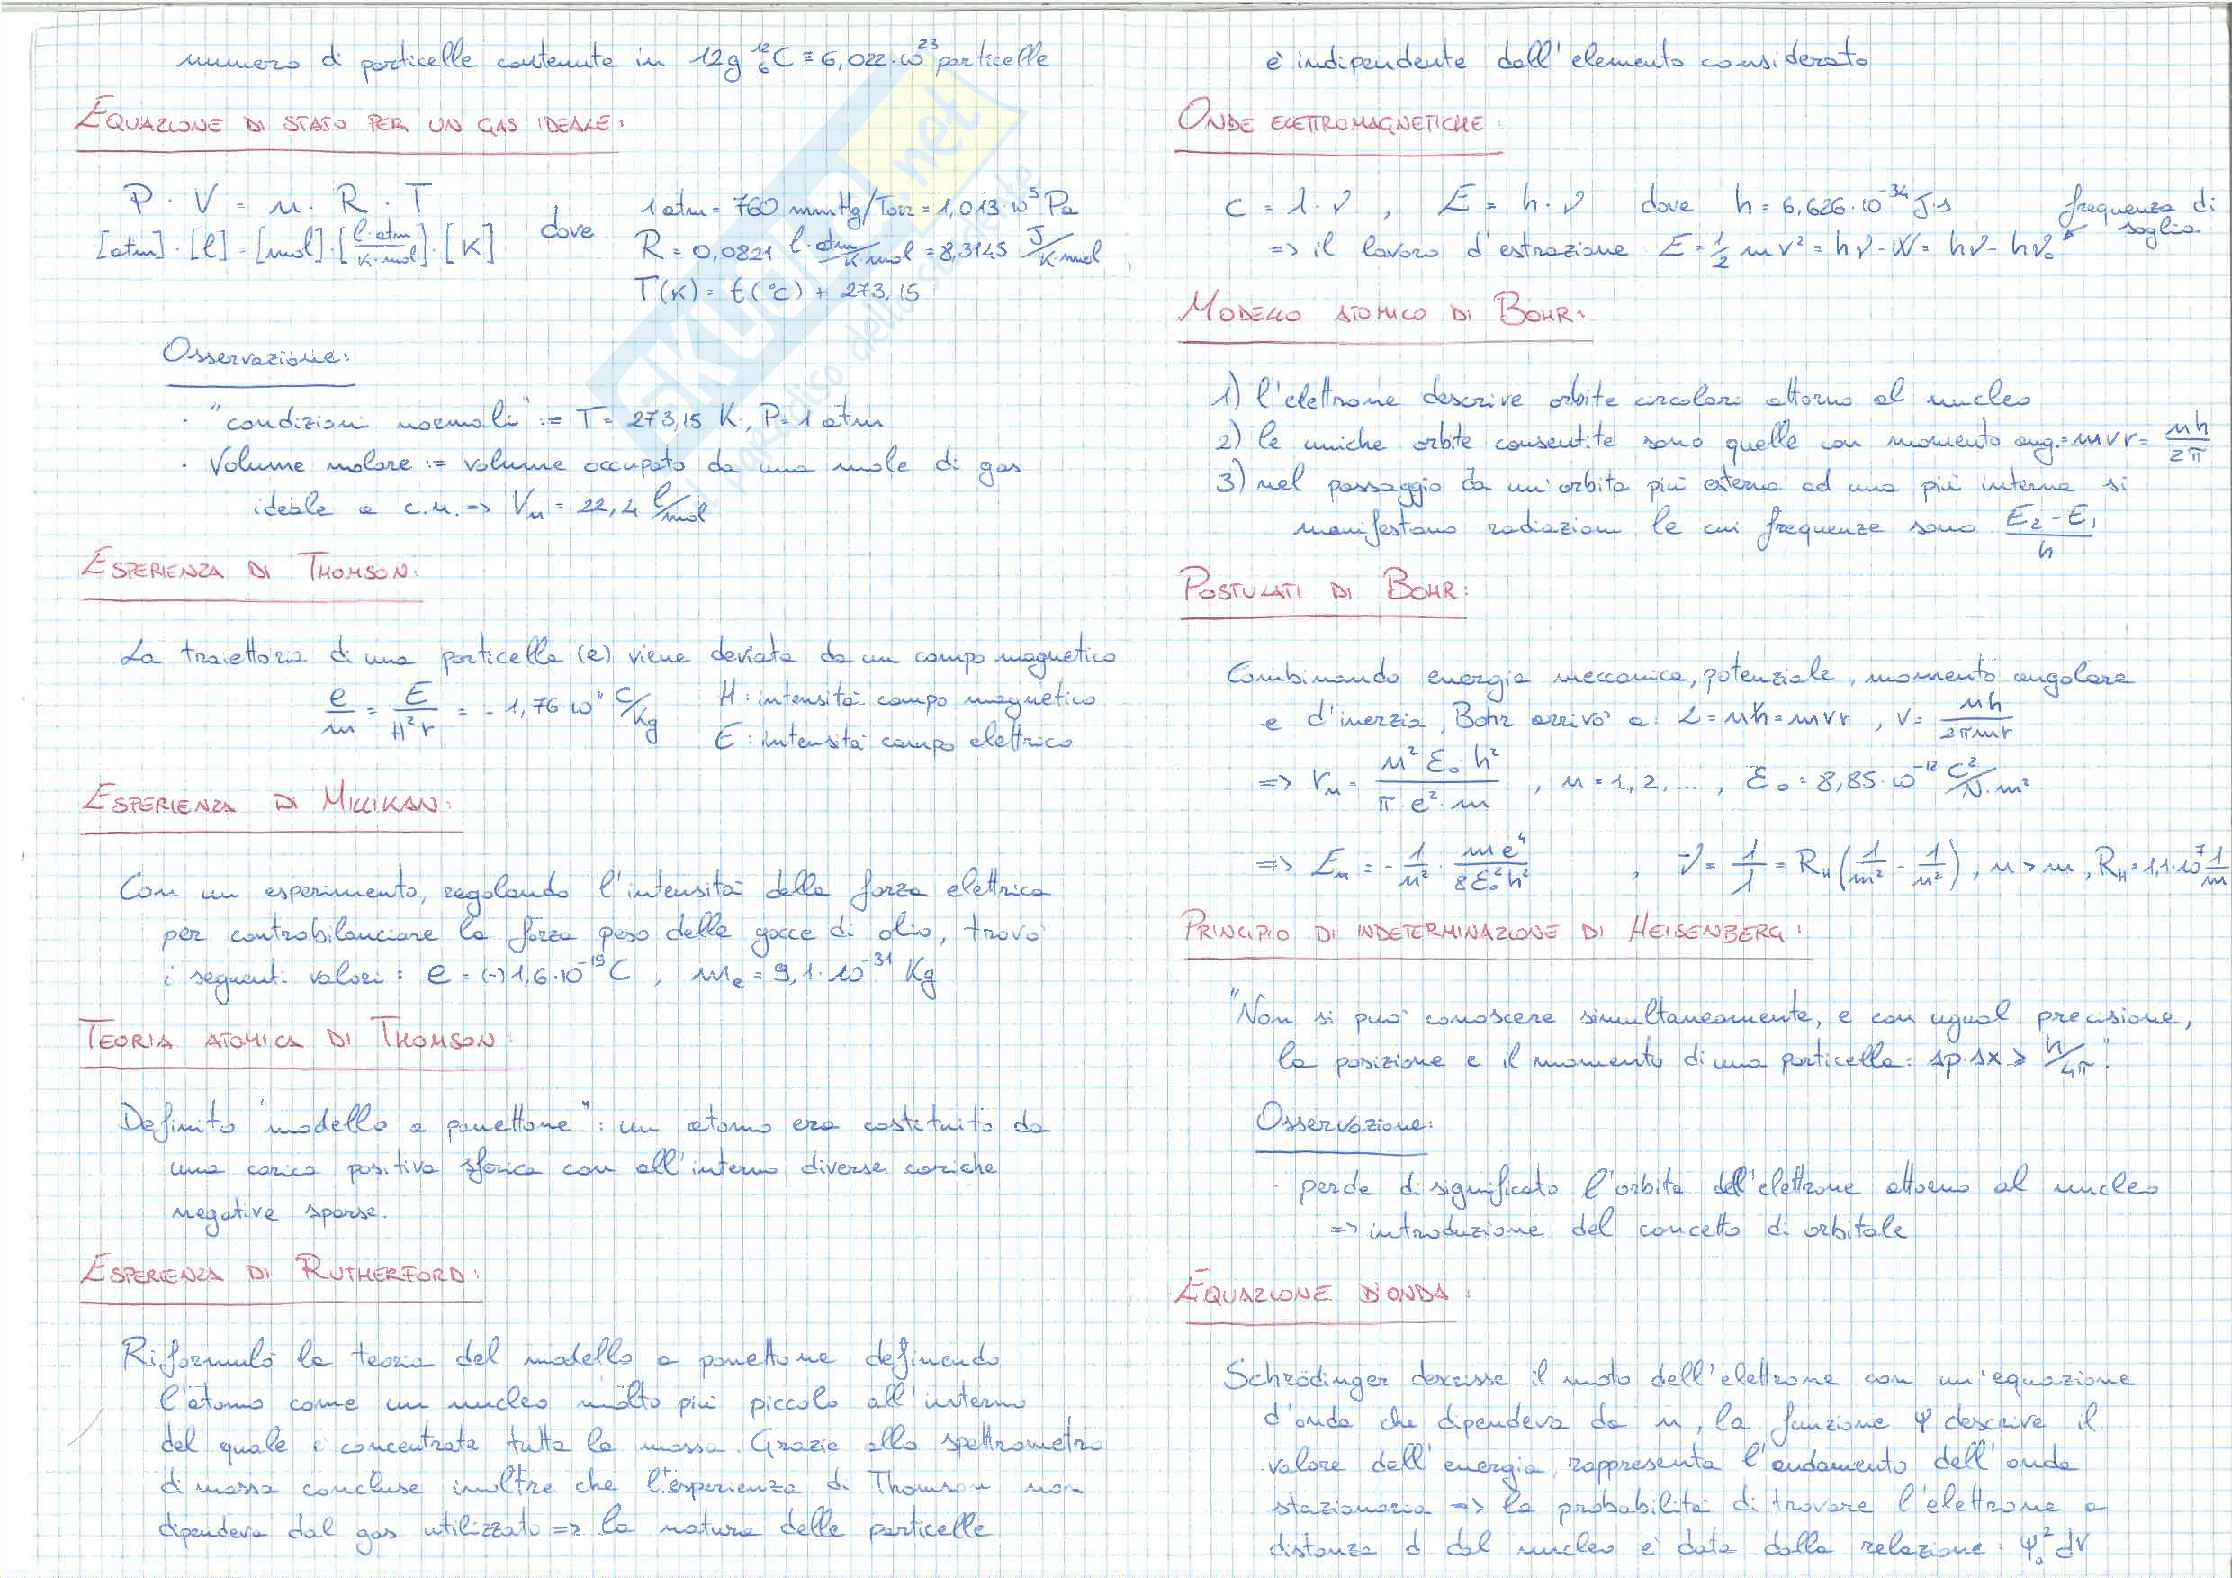 numero di particelle contenute in 12g ¹²₆C = 6,022·10²³ particelle
EQUAZIONE DI STATO PER UN GAS IDEALE:
P · V = n · R · T
[atm]·[l] = [mol]·[l·atm/K·mol]·[K] dove
1 atm = 760 mmHg/Torr = 1,013·10⁵ Pa
R = 0,0821 l·atm/K·mol = 8,3145 J/K·mol
T(K) = t(°C) + 273,15
Osservazione:
· "condizioni normali" := T = 273,15 K, P = 1 atm
· Volume molare := volume occupato da una mole di gas
ideale a c.n. => Vn = 22,4 l/mol
ESPERIENZA DI THOMSON:
La traiettoria di una particella (e) viene deviata da un campo magnetico
e/m = E/H²r = -1,76·10¹¹ C/Kg
H: intensità campo magnetico
E: intensità campo elettrico
ESPERIENZA DI MILLIKAN:
Con un esperimento, regolando l'intensità della forza elettrica
per controbilanciare la forza peso delle gocce di olio, trovò
i seguenti valori: e = (-)1,6·10⁻¹⁹ C, mₑ = 9,1·10⁻³¹ Kg
TEORIA ATOMICA DI THOMSON
Definito "modello a panettone": un atomo era costituito da
una carica positiva sferica con all'interno diverse cariche
negative sparse.
ESPERIENZA DI RUTHERFORD:
Riformulò la teoria del modello a panettone definendo
l'atomo come un nucleo molto più piccolo all'interno
del quale è concentrata tutta la massa. Grazie allo spettrometro
di massa concluse inoltre che l'esperienza di Thomson non
dipendeva dal gas utilizzato => la natura delle particelle
è indipendente dall'elemento considerato
ONDE ELETTROMAGNETICHE:
c = λ·ν, E = h·ν dove h = 6,626·10⁻³⁴ J·s
frequenza di
soglia
=> il lavoro d'estrazione E = ½mv² = hν - W = hν - hν₀
MODELLO ATOMICO DI BOHR:
1) l'elettrone descrive orbite circolari attorno al nucleo
2) le uniche orbite consentite sono quelle con momento ang. = mvr = nh/2π
3) nel passaggio da un'orbita più esterna ad una più interna si
manifestano radiazioni le cui frequenze sono E₂-E₁/h
POSTULATI DI BOHR:
Combinando energia meccanica, potenziale, momento angolare
e d'inerzia, Bohr arrivò a: L = nħ = mvr, v = nh/2πmr
=> rn = n²ε₀h²/πe²·m, n = 1,2,..., ε₀ = 8,85·10⁻¹² C²/N·m²
=> En = -1/n² · me⁴/8ε₀²h², ν̄ = 1/λ = RH(1/m² - 1/n²), n > m, RH = 1,1·10⁷ 1/m
PRINCIPIO DI INDETERMINAZIONE DI HEISENBERG:
"Non si può conoscere simultaneamente, e con ugual precisione,
la posizione e il momento di una particella: Δp·Δx ≥ h/4π".
Osservazione:
· perde di significato l'orbita dell'elettrone attorno al nucleo
=> introduzione del concetto di orbitale
EQUAZIONE D'ONDA:
Schrödinger descrisse il moto dell'elettrone con un'equazione
d'onda che dipendeva da n, la funzione ψ descrive il
valore dell'energia, rappresenta l'andamento dell'onda
stazionaria => la probabilità di trovare l'elettrone a
distanza d dal nucleo è data dalla relazione: ψ₀² dV
SKUOLA.net